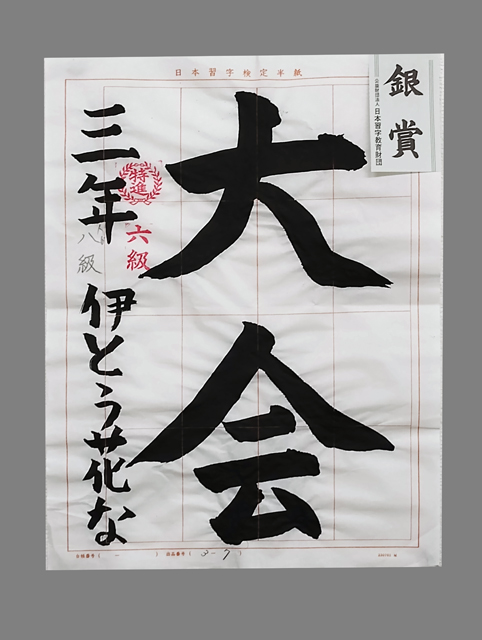 日本習字検定半紙
銀賞
公益財団法人 日本習字教育財団
大会
特進
六級
三年 伊とう花な
八級
合格番号( ー )
出品番号( 3-7 )